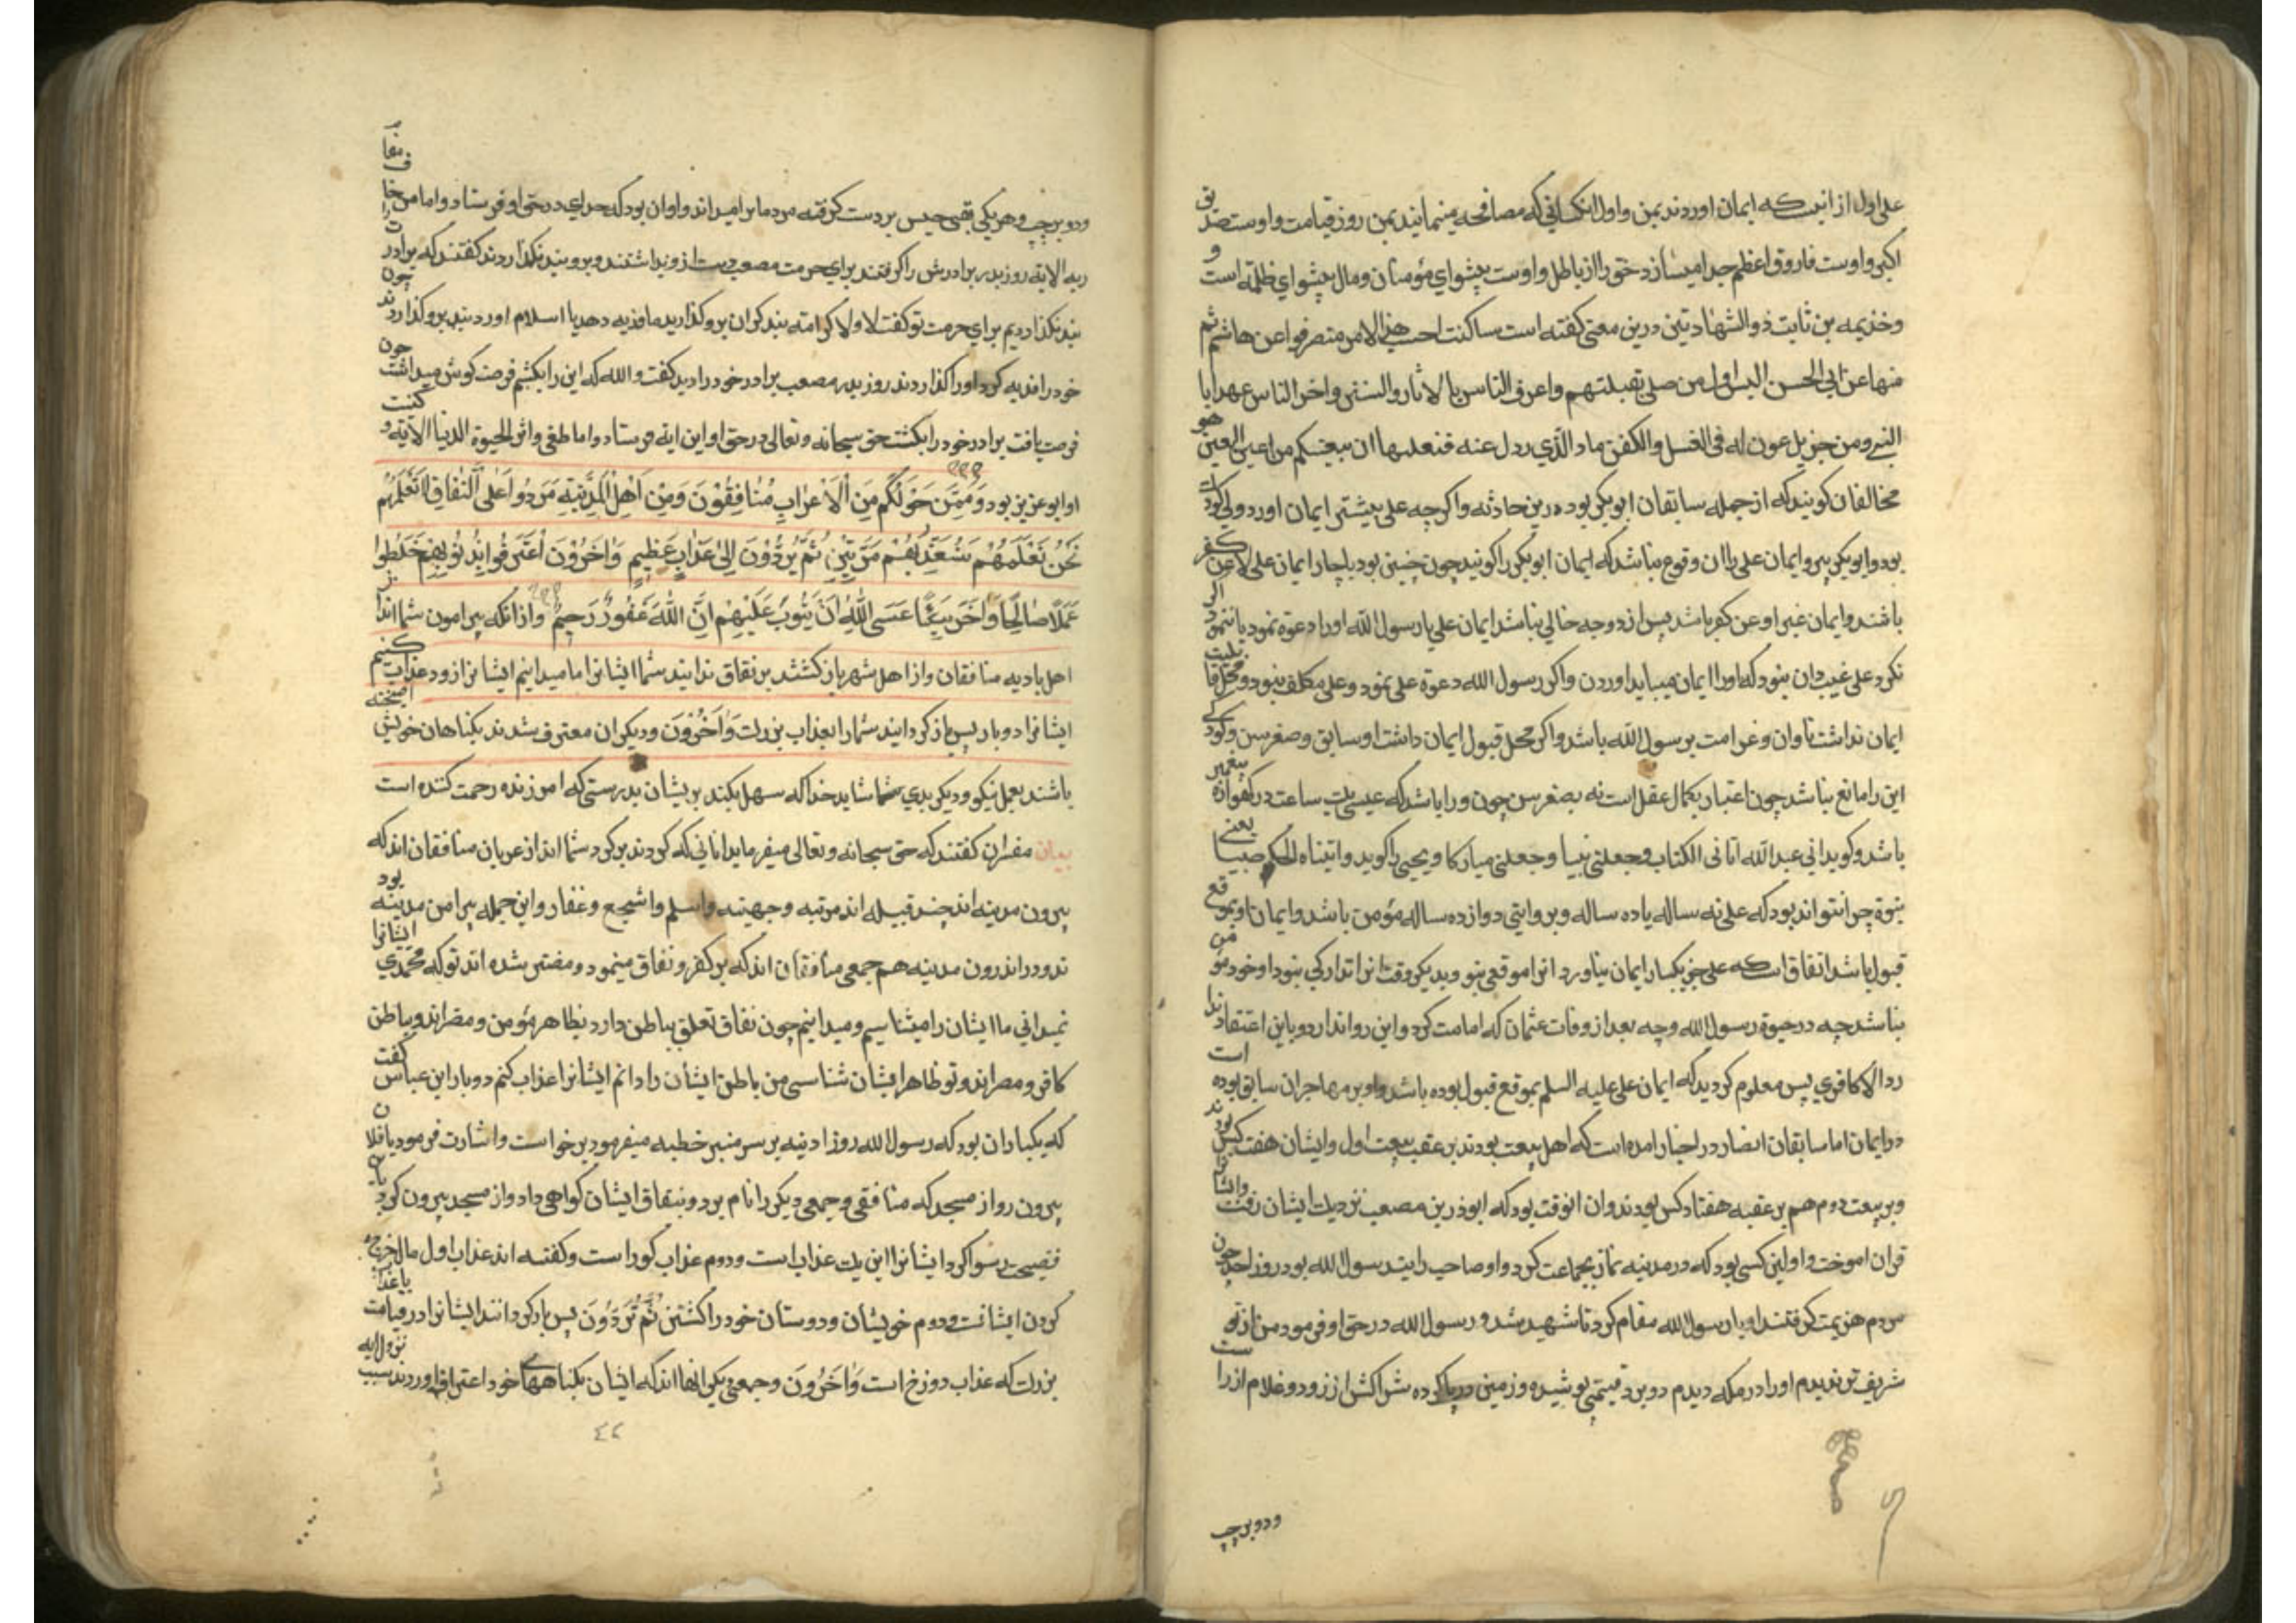 علی اول از انیست که ایمان اوردند بمن و اول انکسانی که مصافحه مینمایند بمن روز قیامت و اوست صدیق
اکبر و اوست فاروق اعظم جدا میسازد حق را از باطل و اوست پیشوای مؤمنان و مال پیشوای ظلمه است و
وخذیمه بن ثابت ذو الشهادتین درین معنی کفته است ما کنت احسب هذا الامر منصرفا عن هاشم ثم
منها عن ابی الحسن الیس اول من صلی بقبلتهم واعرف الناس بالاثار والسنن واخر الناس عهدا با
النبی ومن جبریل عون له فی الغسل والکفن ماذ الذی ردل عنه فنعلمها ان بیعتکم من اعین الغبن هو
مخالفان کویند که از جمله سابقان ابو بکر بوده درین حادثه و اکرچه علی پیشتر ایمان اورد ولی کودک
بود و ابو بکر پیر و ایمان علی را ان وقوع نباشد که ایمان ابو بکر را کویند چون چنین بود ناچار ایمان علی لا عن کفر
باشد و ایمان غیر او عن کفر باشد پس از دو وجه خالی نباشد ایمان علی یا رسول الله اورا دعوة نمود یا ننمود
نکرد علی غیب دان نبود که اورا ایمان میباید اوردن و اکر رسول الله دعوة علی نمود و علی مکلف نبود و محل قابلیت
ایمان نداشت تاوان و غرامت بر رسول الله باشد و اکر محل قبول ایمان داشت او سابق و صغر سن و کودکی
این را مانع نباشد چون اعتبار بکمال عقل است نه بصغر سن چون روا باشد که عیسی یک ساعت در کهواره پیغمبر
باشد و کوید انی عبد الله اتانی الکتاب وجعلنی نبیا وجعلنی مبارکا و یحیی را کوید واتیناه الحکم صبیا یعنی
نبوة چرا نتواند بود که علی نه ساله یا ده ساله و بروایتی دوازده ساله مؤمن باشد و ایمان او بموقع
قبول باشد اتفاق است که علی جز یکبار ایمان نیاورد انرا موقعی نبود و بدیکر وقت انرا تدارکی نبود او خود مؤمن
نباشد چه در حیوة رسول الله و چه بعد از وفات عثمان که امامت کرد و این روا ندارد و باین اعتقاد ندا
رد الا کافری پس معلوم کردید که ایمان علی علیه السلم بموقع قبول بوده باشد و او بر مهاجران سابق بوده است
در ایمان اما سابقان انصار در اخبار امده است که اهل بیعت بودند بر عقبه بیعت اول و ایشان هفت کس بودند
و بر بیعت دوم هم بر عقبه هفتاد کس بودند و ان انوقت بود که ابوذر بن مصعب نزدیک ایشان رفت و ایشانرا
قران اموخت و اولین کسی بود که در مدینه نماز بجماعت کرد و او صاحب رایت رسول الله بود روز احد چون
مردم هزیمت کرفتند او با رسول الله مقام کرد تا شهید شد و رسول الله در حق او فرمود من از تو
شریف تر ندیدم اورا در مکه دیدم دو برد قیمتی پوشیده و زمین در پا کرده شراکش از زر و دو غلام از راست
ودو بر چپ
ودو بر چپ و هر یکی بقبی حیس بر دست کرفته مردمان بر امید اند و او ان بود که خدای در حق او فرستاد و اما من خاف مقام
ربه الایة روز بدر برادرش را کرفتند برای حرمت مصعب دست ازو بداشتند و برو بند نکذاردند کفتند که برادرت را چون
بند نکذاردیم برای حرمت تو کفت لا ولا کرامة بند کران برو کذارید ما فدیه دهد یا اسلام اورد بند برو کذاردند
خود را فدیه کرد اورا کذاردند روز بدر مصعب برادر خود را دید کفت والله که این را بکشم فرصت کوش میداشت چون
فرصت یافت برادر خود را بکشت حق سبحانه و تعالی در حق او این ایه فرستاد و اما من طغی واثر الحیوة الدنیا الایة و کنیت
او ابو عزیز بود وَمِمَّنْ حَوْلَكُمْ مِنَ الْأَعْرَابِ مُنَافِقُونَ وَمِنْ أَهْلِ الْمَدِينَةِ مَرَدُوا عَلَى النِّفَاقِ لَا تَعْلَمُهُمْ
نَحْنُ نَعْلَمُهُمْ سَنُعَذِّبُهُمْ مَرَّتَيْنِ ثُمَّ يُرَدُّونَ إِلَى عَذَابٍ عَظِيمٍ وَآخَرُونَ اعْتَرَفُوا بِذُنُوبِهِمْ خَلَطُوا
عَمَلًا صَالِحًا وَآخَرَ سَيِّئًا عَسَى اللَّهُ أَنْ يَتُوبَ عَلَيْهِمْ إِنَّ اللَّهَ غَفُورٌ رَحِيمٌ و از انکه پیرامون شما اند از
اهل بادیه منافقان و از اهل شهر باز کشتند بر نفاق ندانید شما ایشانرا ما میدانیم ایشانرا زود عذاب کنیم
ایشانرا دو بار پس باز کردانیدشان را بعذاب بزرک وَآخَرُونَ و دیکران معترف شدند بکناهان خویش امیخته
باشند بعمل نیکو و دیکر بدی شما شاید خدا که سهل بکند بریشان بدرستی که امرزنده رحمت کننده است
بیان مفسران کفتند که حق سبحانه و تعالی میفرماید انانی که کردند بر کرد شما اند از عربان منافقان اند که
بیرون مدینه اند چند قبیله اند مزینه و جهینه و اسلم و اشجع و غفار و این جمله پیرامن مدینه بود
ند و در اندرون مدینه هم جمعی منافقان اند که بر کفر و نفاق مینمود و مفتن شده اند تو که محمدی ایشانرا
نمیدانی ما ایشان را میشناسیم و میدانیم چون نفاق تعلق بباطن دارد بظاهر مؤمن و مضراند و بباطن
کافر و مصراند و تو ظاهر ایشان شناسی من باطن ایشان را دانم ایشانرا عذاب کنم دو بار ابن عباس کفت
که یکبار ان بود که رسول الله روز ادینه بر سر منبر خطبه میفرمود بر خواست و اشارت فرمود یا فلان
بیرون رو از مسجد که منافقی و جمعی دیکر را نام برد و بنفاق ایشان کواهی داد و از مسجد بیرون کرد با
فضیحت رسوا کرد ایشانرا این یک عذاب است و دوم عذاب کور است و کفته اند عذاب اول مال خرج
کردن ایشانست و دوم خویشان و دوستان خود را کشتن ثُمَّ يُرَدُّونَ پس باز کردانند ایشانرا در قیامت با عذاب
بزرک که عذاب دوزخ است وَآخَرُونَ و جمعی دیکر انها اند که ایشان بکناههای خود اعتراف اوردند سبب نزول ایه
٤٢